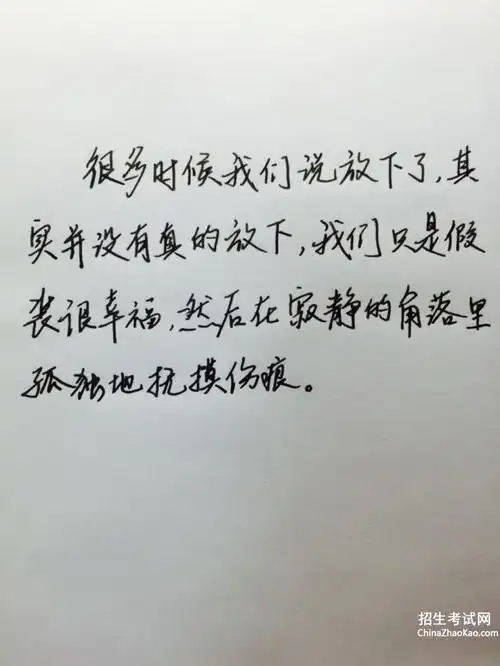 很多时候我们说放下了,其
实并没有真的放下,我们只是假
装很幸福,然后在寂静的角落里
孤独地抚摸伤痕。
招生考试网
ChinaZhaoKao.com